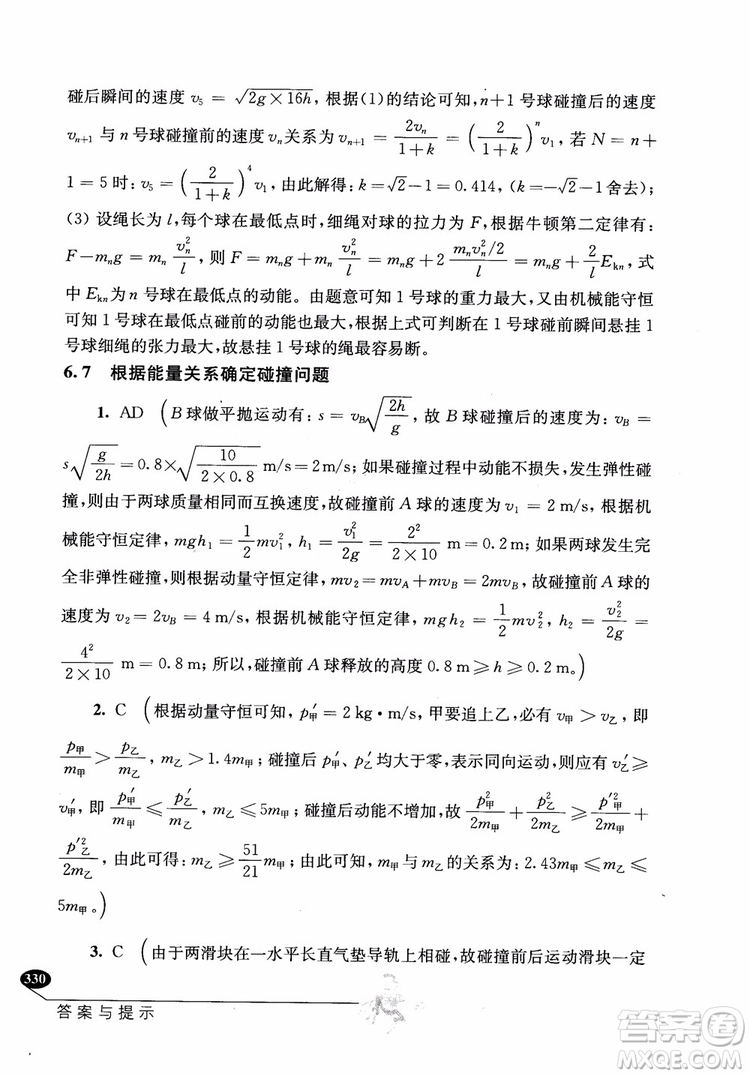 碰后瞬间的速度 v₅ = √(2g×16h)，根据(1)的结论可知，n+1 号球碰撞后的速度
vₙ₊₁ 与 n 号球碰撞前的速度 vₙ关系为 vₙ₊₁ = 2vₙ/(1+k) = (2/(1+k))ⁿ v₁，若 N = n+
1 = 5 时：v₅ = (2/(1+k))⁴ v₁，由此解得：k=√2−1=0.414，(k=−√2−1舍去)；
(3) 设绳长为 l，每个球在最低点时，细绳对球的拉力为 F，根据牛顿第二定律有：
F−mₙg = mₙ vₙ²/l，则 F = mₙg + mₙ vₙ²/l = mₙg + 2 (mₙvₙ²/2)/l = mₙg + (2/l)Eₖₙ，式
中 Eₖₙ为 n 号球在最低点的动能。由题意可知 1 号球的重力最大，又由机械能守恒
可知 1 号球在最低点碰前的动能也最大，根据上式可判断在 1 号球碰前瞬间悬挂 1
号球细绳的张力最大，故悬挂 1 号球的绳最容易断。
6.7 根据能量关系确定碰撞问题
1. AD (B 球做平抛运动有：s = v_B√(2h/g)，故 B 球碰撞后的速度为：v_B =
s√(g/2h) = 0.8×√(10/(2×0.8)) m/s=2m/s；如果碰撞过程中动能不损失，发生弹性碰
撞，则由于两球质量相同而互换速度，故碰撞前 A 球的速度为 v₁ = 2 m/s，根据机
械能守恒定律，mgh₁ = ½mv₁²，h₁ = v₁²/2g = 2²/(2×10) m = 0.2 m；如果两球发生完
全非弹性碰撞，则根据动量守恒定律，mv₂ = mv_A + mv_B = 2mv_B，故碰撞前 A 球的
速度为 v₂ = 2v_B = 4 m/s，根据机械能守恒定律，mgh₂ = ½mv₂²，h₂ = v₂²/2g =
4²/(2×10) m=0.8 m；所以，碰撞前 A 球释放的高度 0.8 m⩾h⩾0.2 m。)
2. C (根据动量守恒可知，p′甲 = 2 kg·m/s，甲要追上乙，必有 v甲 > v乙，即
p甲/m甲 > p乙/m乙，m乙 > 1.4m甲；碰撞后 p′甲、p′乙 均大于零，表示同向运动，则应有 v′乙 ⩾
v′甲，即 p′甲/m甲 ⩽ p′乙/m乙，m乙 ⩽ 5m甲；碰撞后动能不增加，故 p甲²/2m甲 + p乙²/2m乙 ⩾ p′甲²/2m甲 +
p′乙²/2m乙，由此可得：m乙 ⩾ (51/21)m甲；m甲 与 m乙 的关系为：2.43m甲 ⩽ m乙 ⩽
5m甲。)
3. C (由于两滑块在一水平长直气垫导轨上相碰，故碰撞前后运动滑块一定
330
答案与提示
答案卷
MXQE.COM